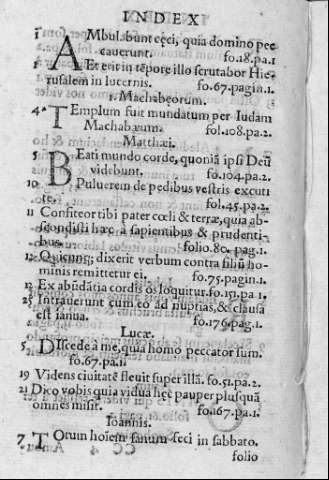 INDEX
1 AMbulabunt cęci, quia domino pec
cauerunt. fo.18.pa.1
Et erit in tẽpore illo scrutabor Hie-
rusalem in lucernis. fo.67.pagin.1.
1. Machabęorum.
4 TEmplum fuit mundatum per Iudam
Machabæum. fol.108.pa.2.
Matthæi.
5 BEati mundo corde, quoniã ipsi Deũ
videbunt. fo.104.pa.2.
10 Puluerem de pedibus vestris excuti
te. fol.45.pa.2.
11 Confiteor tibi pater cœli & terræ, quia ab-
scondisti hæc a sapientibus & prudenti-
bus. folio.80. pag.1.
12 Quicunq; dixerit verbum contra filiũ ho-
minis remittetur ei. fo.75.pagin.1.
12 Ex abũdãtia cordis os loquitur.fo.151.pa.1.
25 Intrauerunt cum eo ad nuptias, & clausa
est ianua. fo.176.pag.1.
Lucæ.
5 DIscede a me, quia homo peccator sum.
fo.67.pa.1.
19 Videns ciuitatẽ fleuit super illã. fo.51.pa.2.
21 Dico vobis quia vidua hęc pauper plusquã
omnes misit. fo.167.pa.1.
Ioannis.
7 TOtum hoĩem sanum feci in sabbato.
folio